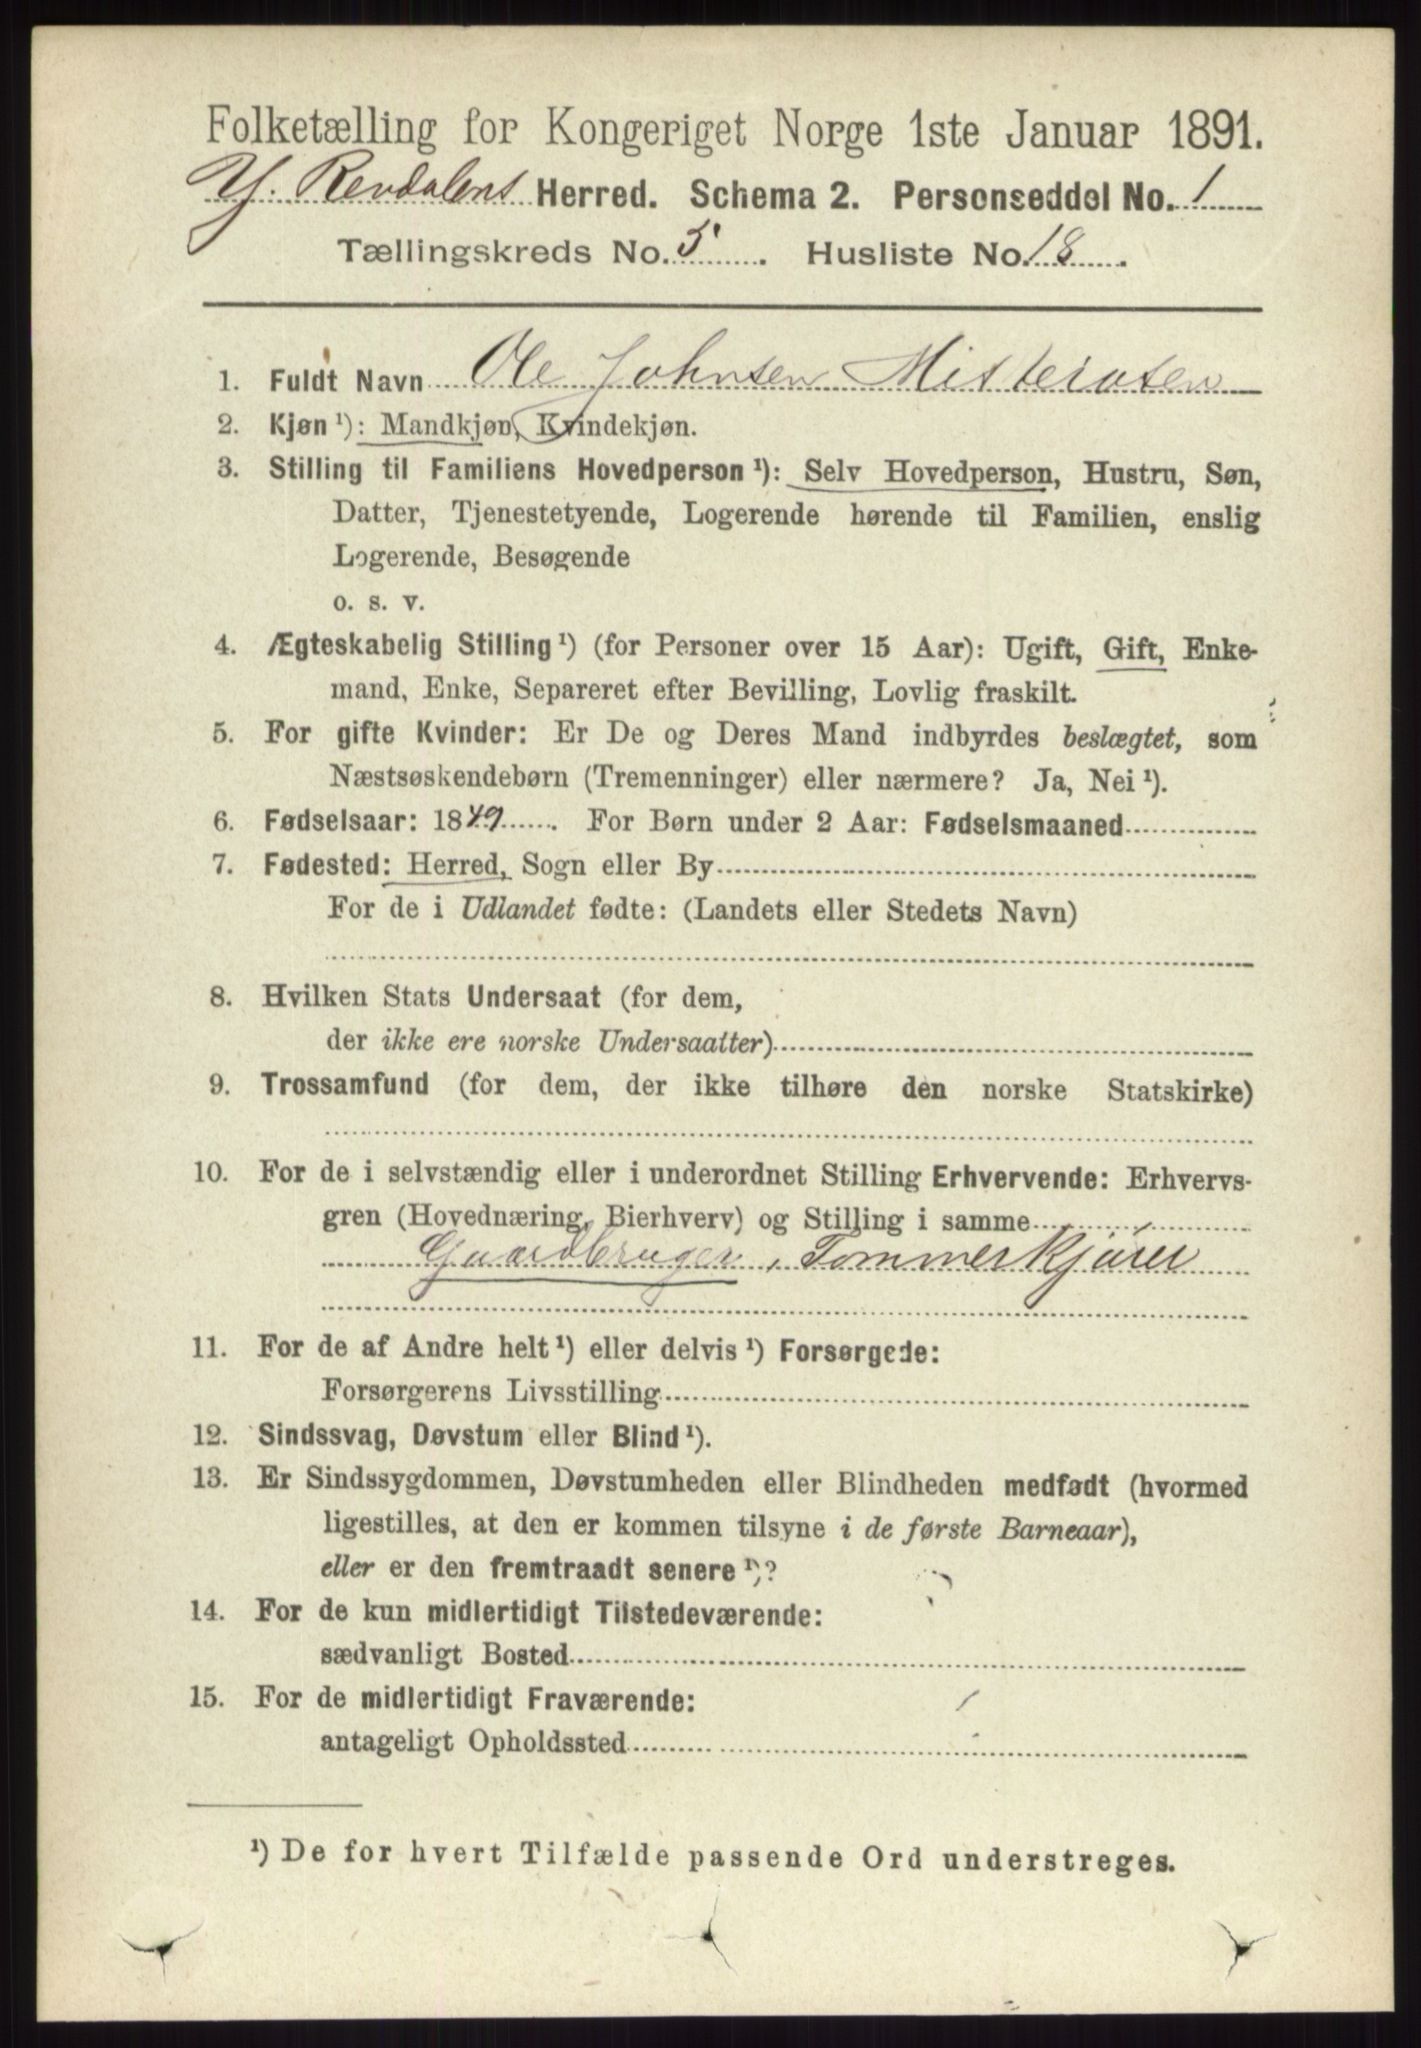 Folketælling for Kongeriget Norge 1ste Januar 1891.
Y. Rendalens Herred. Schema 2. Personseddel No. 1
Tællingskreds No. 5. Husliste No. 18.
1. Fuldt Navn Ole Johnsen Misterosen
2. Kjøn ¹): Mandkjøn, Kvindekjøn.
3. Stilling til Familiens Hovedperson ¹): Selv Hovedperson, Hustru, Søn,
Datter, Tjenestetyende, Logerende hørende til Familien, enslig
Logerende, Besøgende
o. s. v.
4. Ægteskabelig Stilling ¹) (for Personer over 15 Aar): Ugift, Gift, Enke-
mand, Enke, Separeret efter Bevilling, Lovlig fraskilt.
5. For gifte Kvinder: Er De og Deres Mand indbyrdes beslægtet, som
Næstsøskendebørn (Tremenninger) eller nærmere? Ja, Nei ¹).
6. Fødselsaar: 1849. For Børn under 2 Aar: Fødselsmaaned
7. Fødested: Herred, Sogn eller By
For de i Udlandet fødte: (Landets eller Stedets Navn)
8. Hvilken Stats Undersaat (for dem,
der ikke ere norske Undersaatter)
9. Trossamfund (for dem, der ikke tilhøre den norske Statskirke)
10. For de i selvstændig eller i underordnet Stilling Erhvervende: Erhvervs-
gren (Hovednæring, Bierhverv) og Stilling i samme
Gaardbruger, Tømmerkjører
11. For de af Andre helt ¹) eller delvis ¹) Forsørgede:
Forsørgerens Livsstilling
12. Sindssvag, Døvstum eller Blind ¹).
13. Er Sindssygdommen, Døvstumheden eller Blindheden medfødt (hvormed
ligestilles, at den er kommen tilsyne i de første Barneaar),
eller er den fremtraadt senere ¹)?
14. For de kun midlertidigt Tilstedeværende:
sædvanligt Bosted
15. For de midlertidigt Fraværende:
antageligt Opholdssted
¹) De for hvert Tilfælde passende Ord understreges.